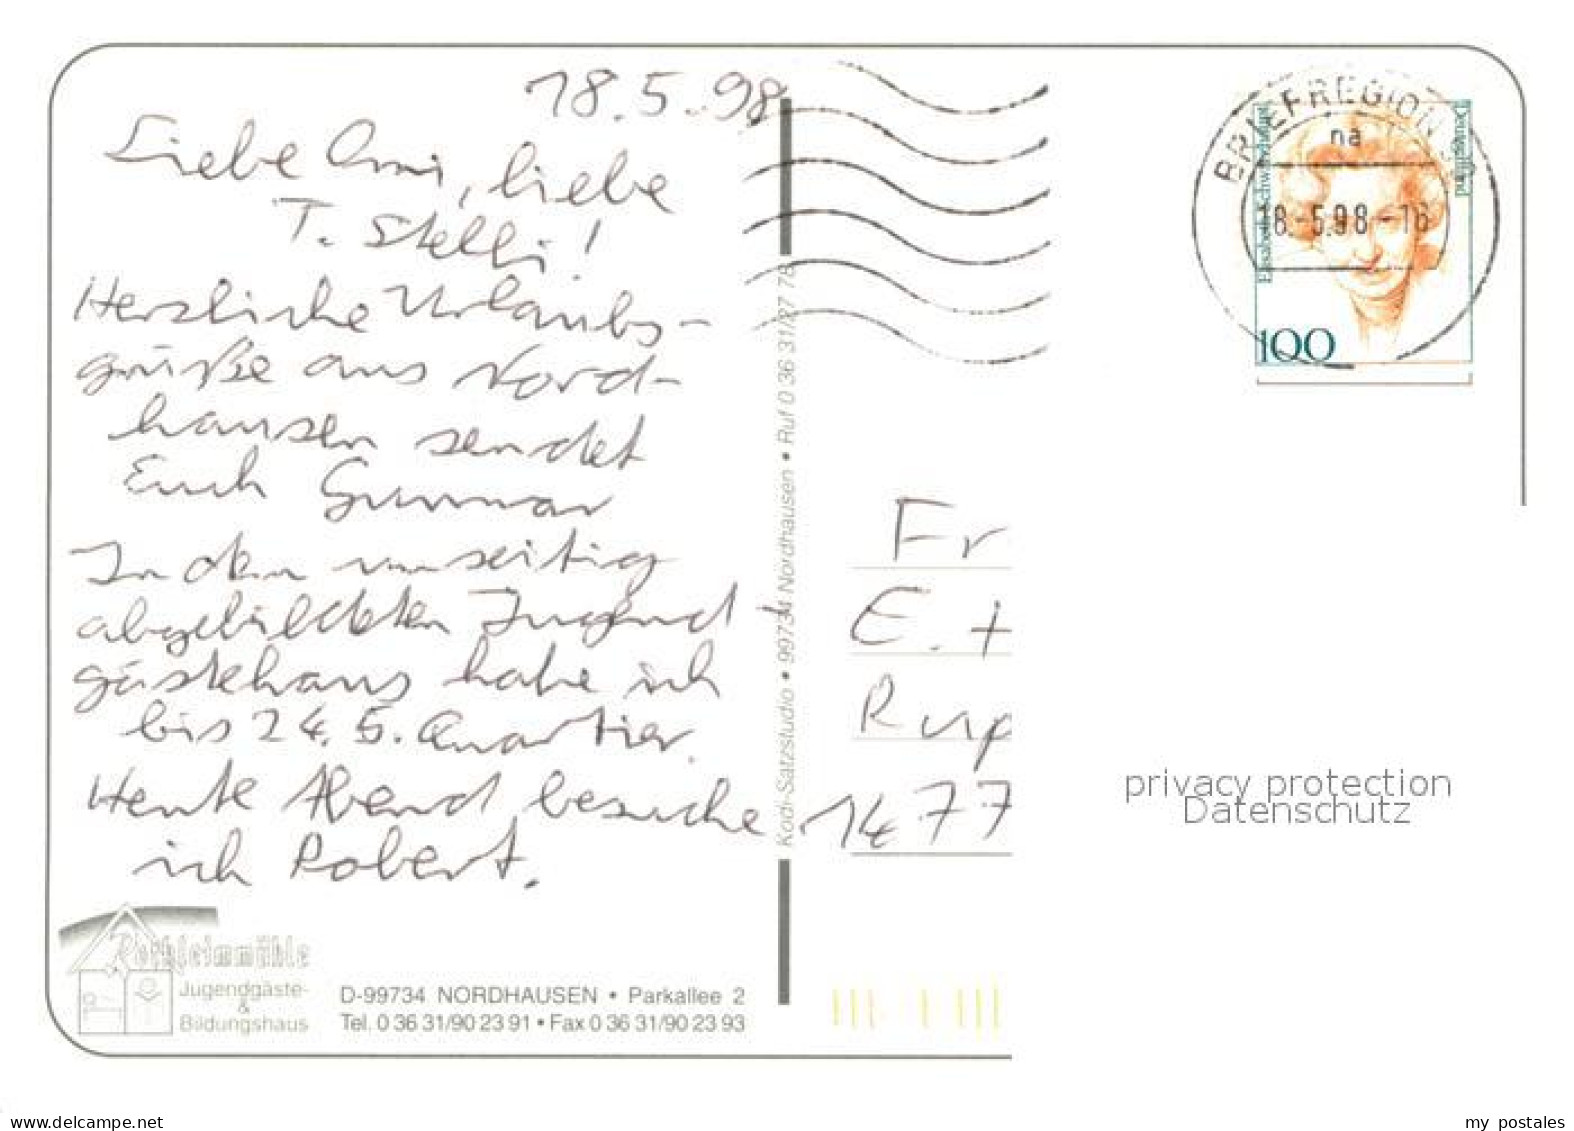 18.5.98
Liebe Omi, liebe
T. Steffi!
Herzliche Urlaubs-
grüße aus Nord-
hausen sendet
Euch Gunnar
In dem umseitig
abgebildeten Jugend-
gästehaus habe ich
bis 24.5. Quartier.
Heute Abend besuche
ich Robert.
Rothleimmühle
Jugendgäste-
&
Bildungshaus
D-99734 NORDHAUSEN • Parkallee 2
Tel. 0 36 31/90 23 91 • Fax 0 36 31/90 23 93
Kodi-Satzstudio • 99734 Nordhausen • Ruf 0 36 31/27 78
BRIEFREGION
na
18.-5.98-16
Elisabeth Schwarzhaupt
Deutschland
100
Fr
E. +
Rup
1477
privacy protection
Datenschutz
www.delcampe.net
my_postales